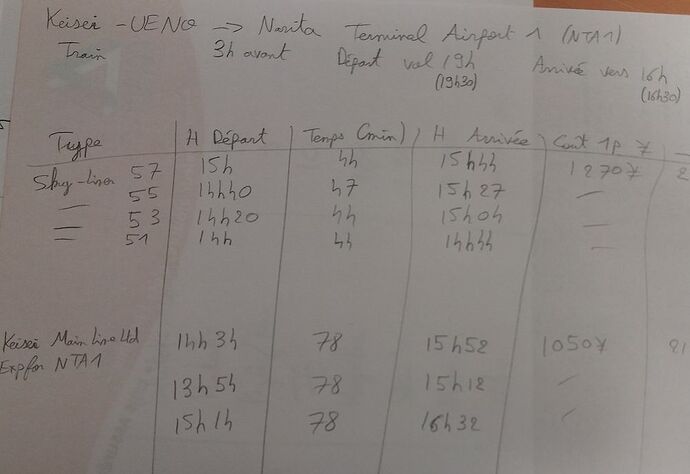 Keisei - UENO → Narita Terminal Airport 1 (NTA1)
Train 3h avant Départ vol 19h Arrivée vers 16h
(19h30) (16h30)
Type H Départ Temps (min) H Arrivée Coût 1p ¥
Sky-liner 57 15h 44 15h44 1270¥ 2
— 55 14h40 47 15h27 —
— 53 14h20 44 15h04 —
— 51 14h 44 14h44 —
Keisei Main Line Ltd 14h34 78 15h52 1050¥ 21
Exp for NTA1
13h54 78 15h12 —
15h14 78 16h32 —